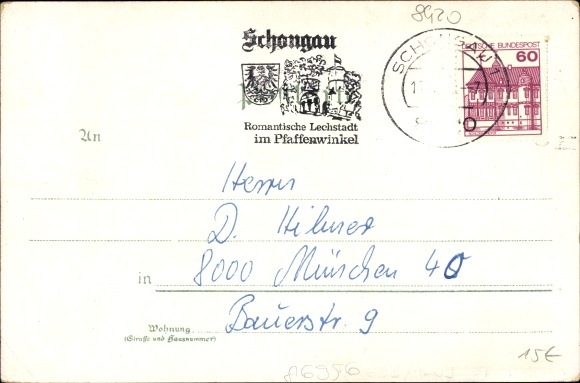 8920
Schongau
Romantische Lechstadt
im Pfaffenwinkel
SCHONGAU 1
DEUTSCHE BUNDESPOST
60
An
Herrn
D. Hilmer
in 8000 München 40
Bauerstr. 9
Wohnung
(Straße und Hausnummer)
86956
15€